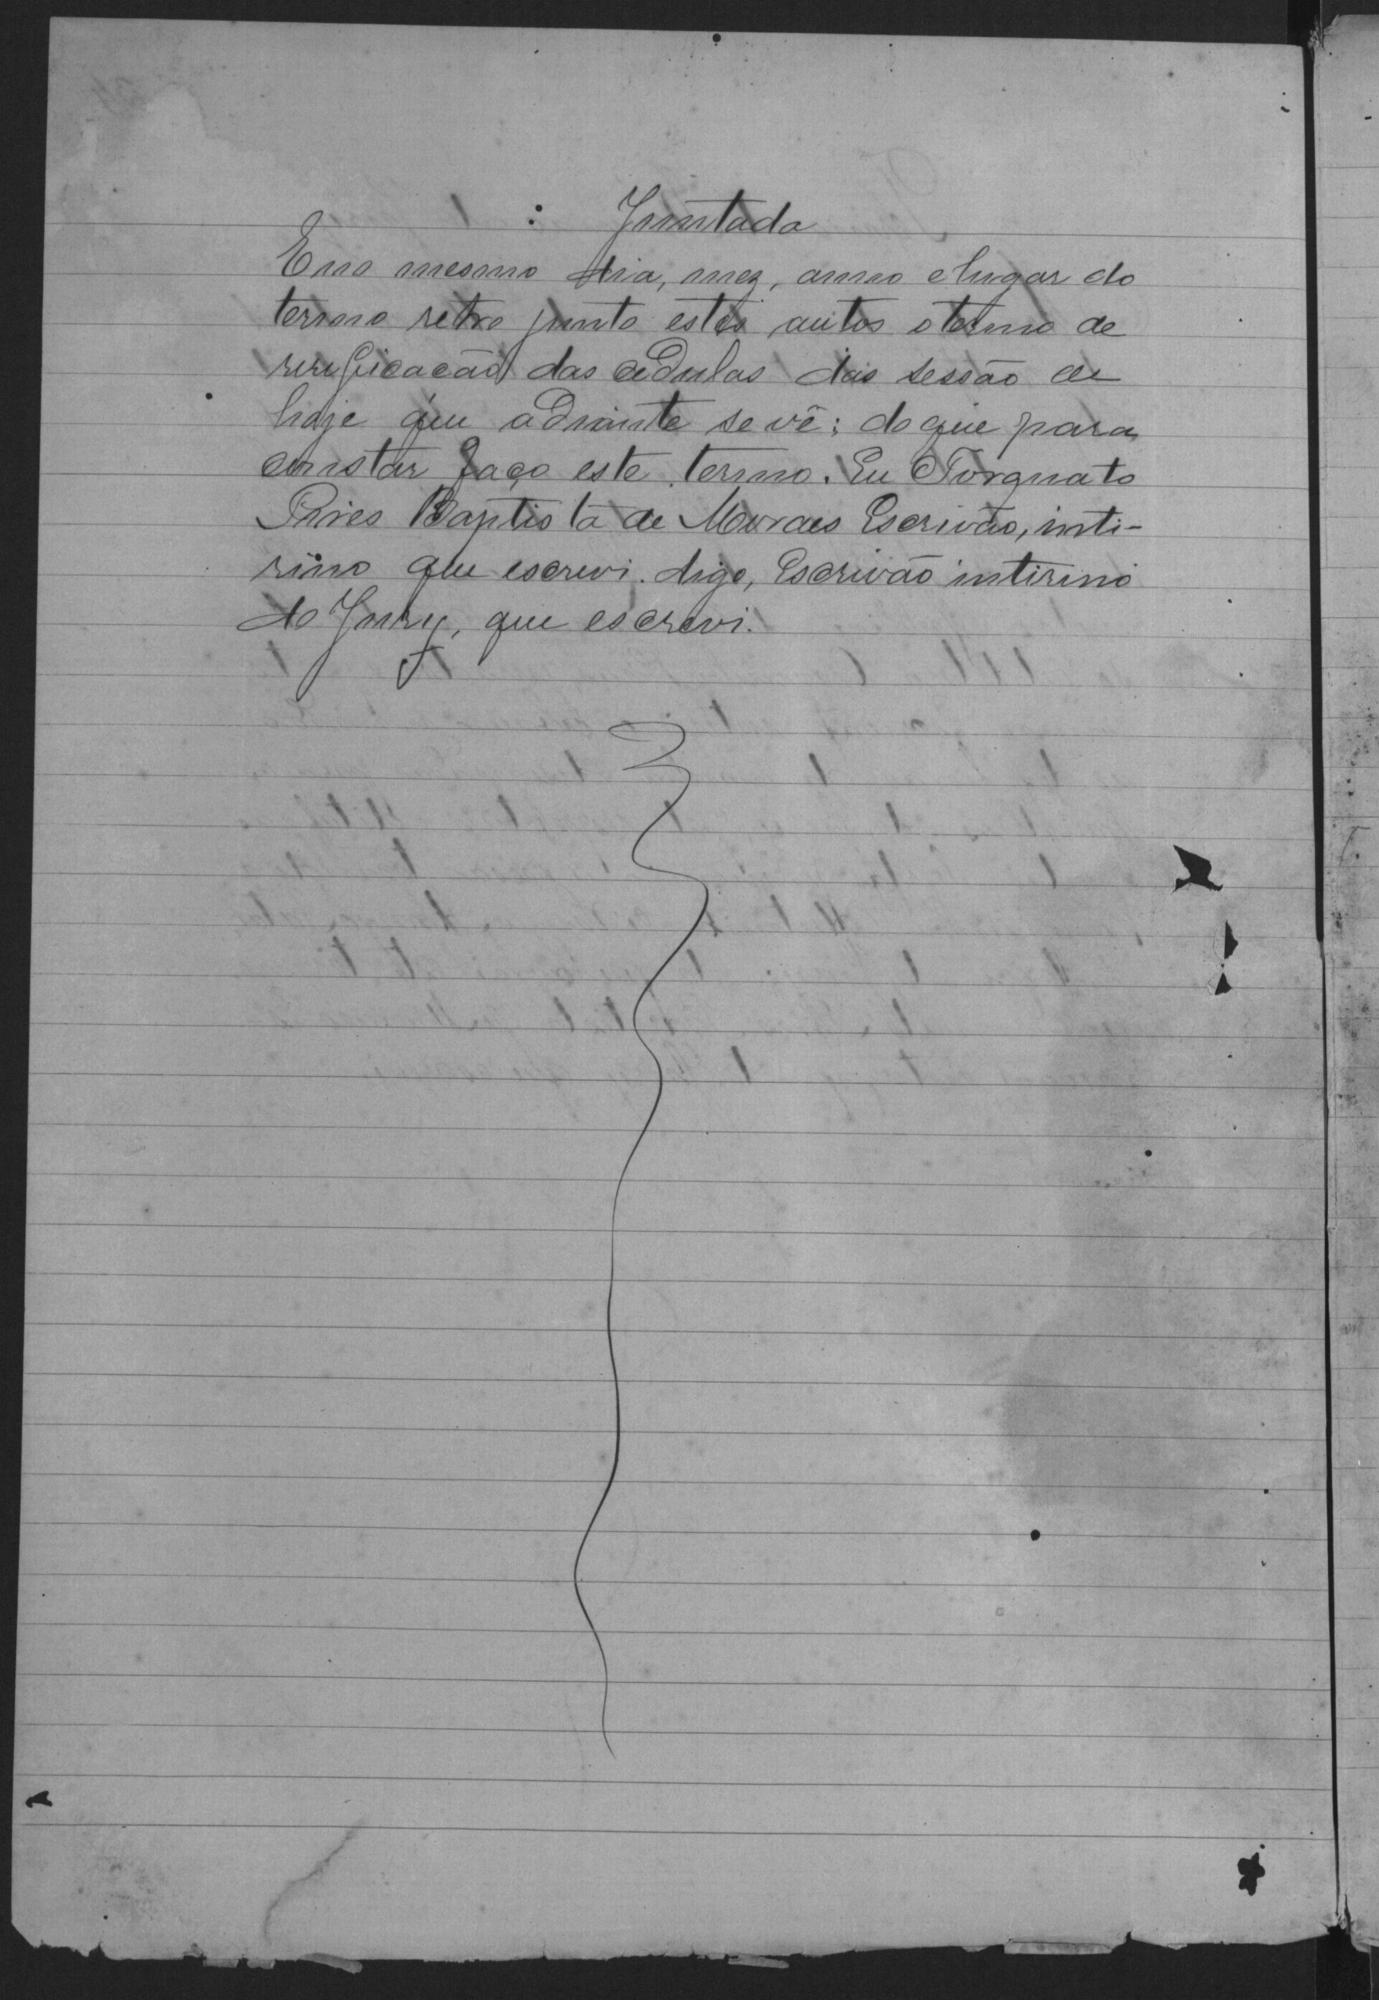 Juntada
E no mesmo dia, mez, anno e lugar do
termo retro junto estes autos o termo de
verificacão das cedulas das sessão de
hoje que adiante se vê; do que para
constar faço este termo. Eu Torquato
Pires Baptista de Moraes Escrivão, inti-
rino que escrevi. digo, Escrivão intirino
do Jury, que escrevi.